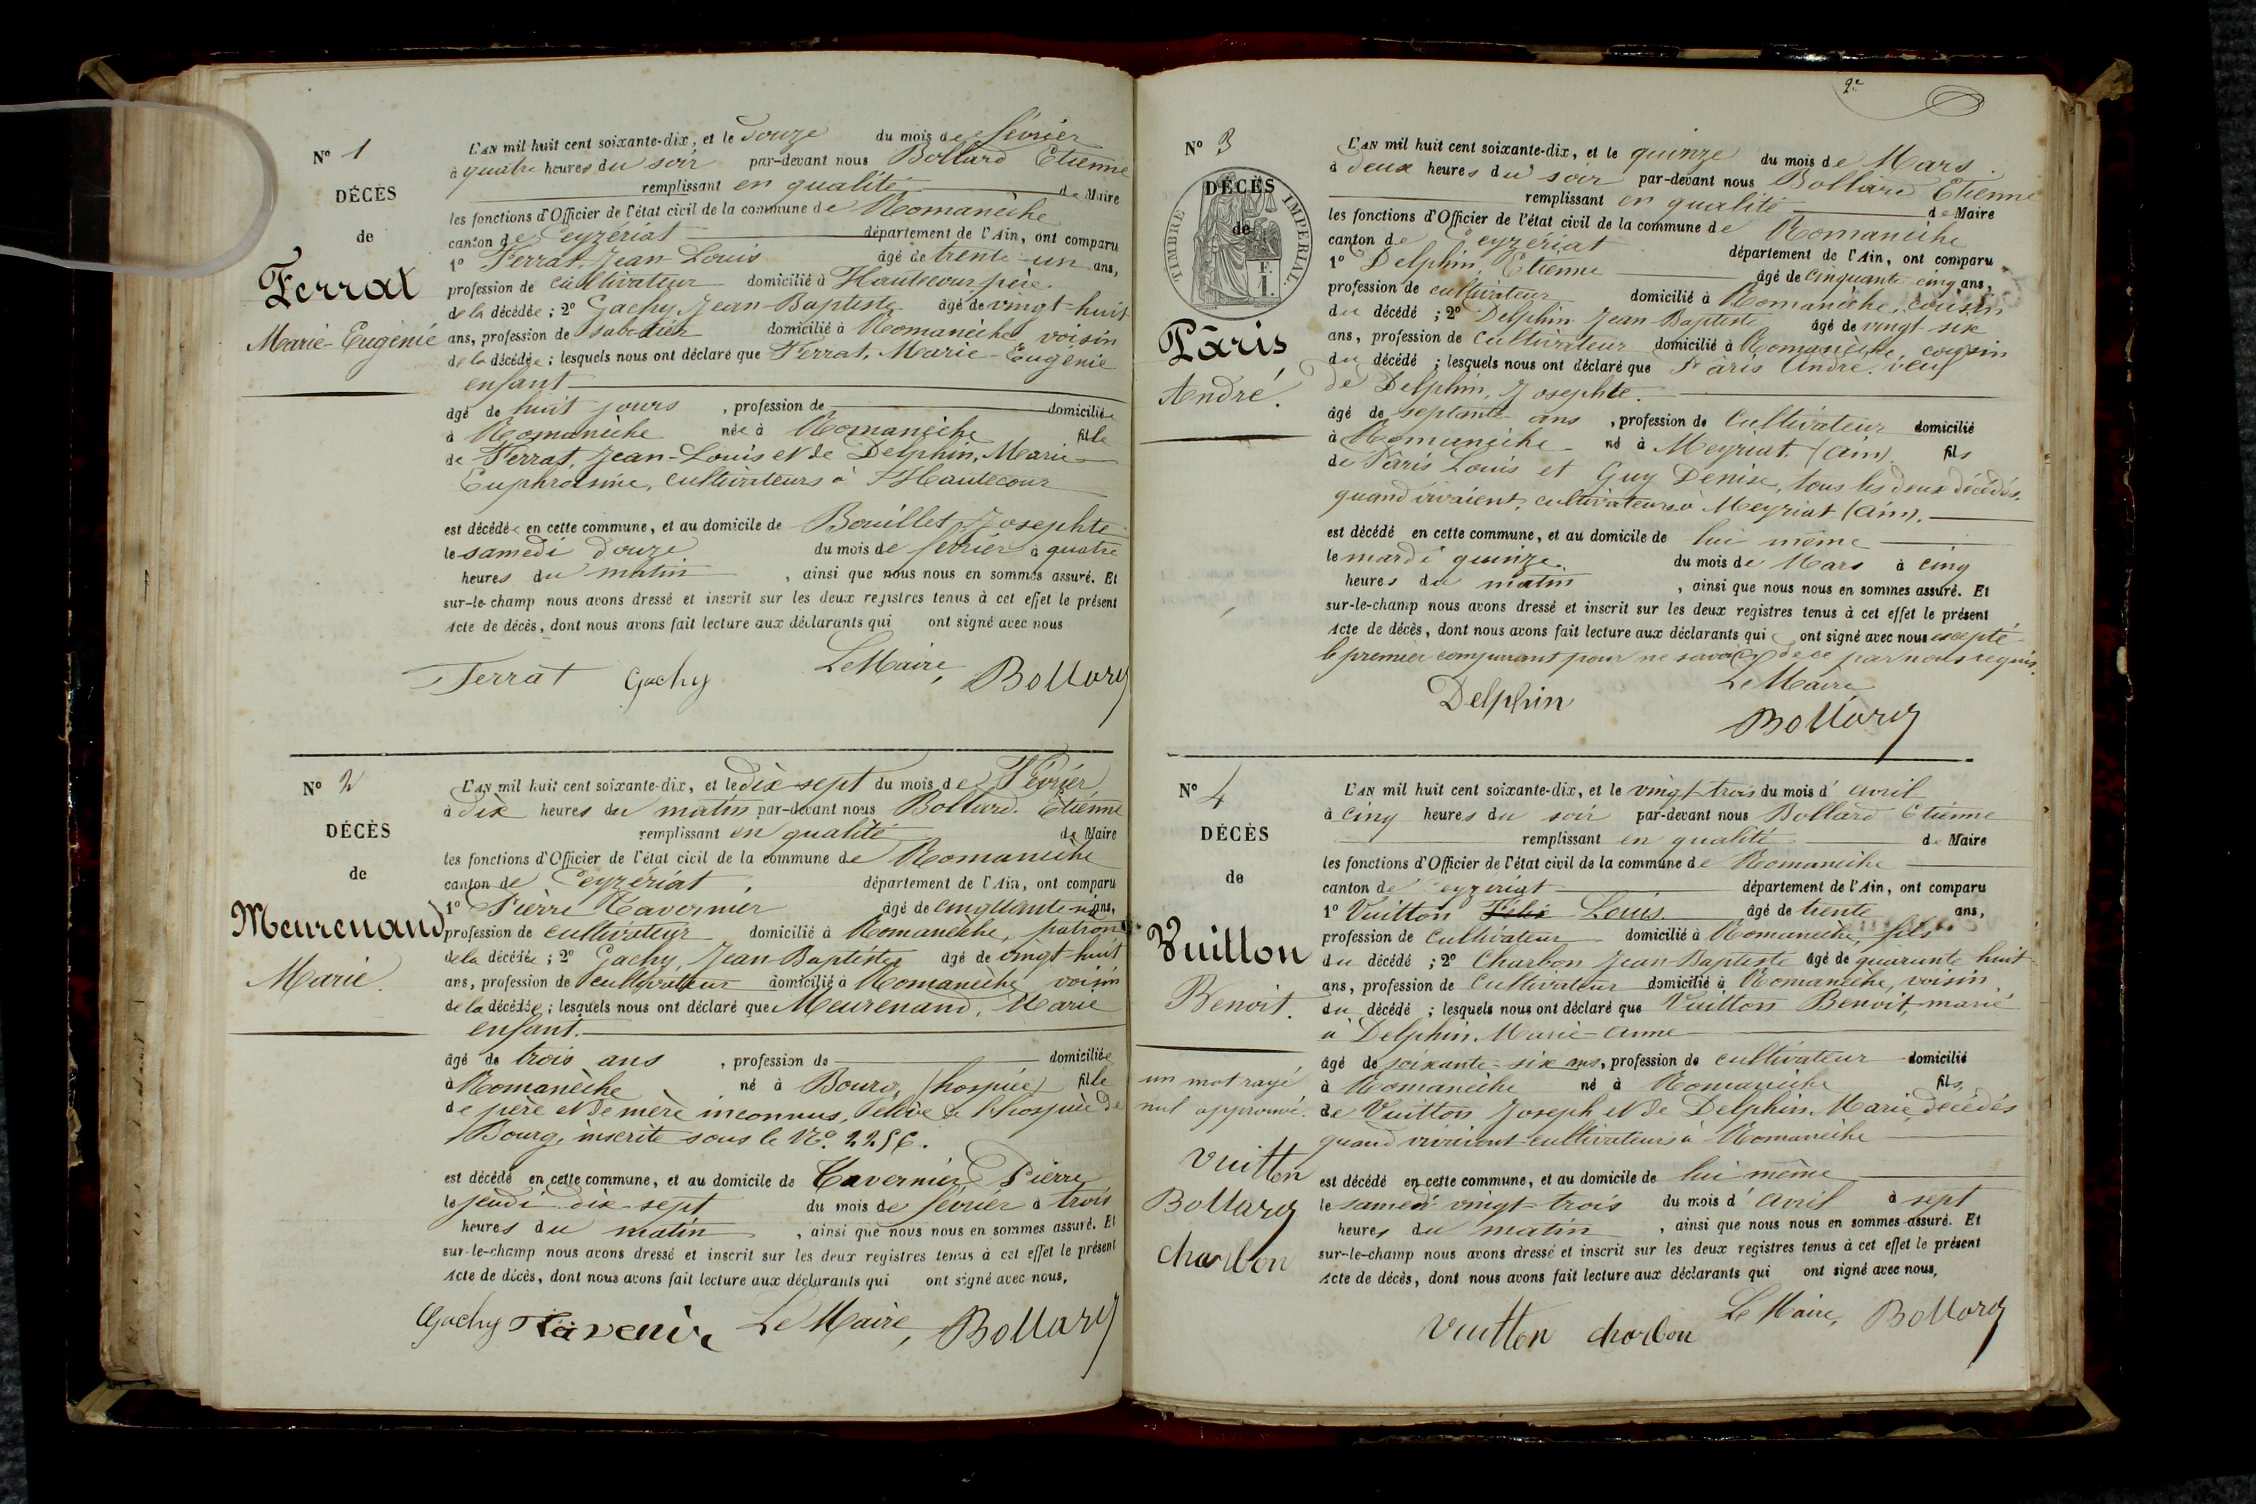 N° 1
DÉCÈS
de
Ferrat
Marie-Eugénie
L'AN mil huit cent soixante-dix, et le Douze du mois de février
à quatre heures du soir par-devant nous Bollard Etienne
remplissant en qualité de Maire
les fonctions d'Officier de l'état civil de la commune de Romanèche
canton de Ceyzériat département de l'Ain, ont comparu
1° Ferrat, Jean Louis âgé de trente-un ans,
profession de cultivateur domicilié à Hautecour père
de la décédée ; 2° Gachy, Jean-Baptiste âgé de vingt-huit
ans, profession de sabotier domicilié à Romanèche voisin
de la décédée ; lesquels nous ont déclaré que Ferrat, Marie-Eugénie
enfant
âgé de huit jours , profession de domiciliée
à Romanèche née à Romanèche fille
de Ferrat, Jean-Louis et de Delphin, Marie
Euphrasine, cultivateurs à Hautecour
est décédée en cette commune, et au domicile de Bouillet Josephte
le samedi douze du mois de février à quatre
heures du matin , ainsi que nous nous en sommes assuré. Et
sur-le-champ nous avons dressé et inscrit sur les deux registres tenus à cet effet le présent
Acte de décès, dont nous avons fait lecture aux déclarants qui ont signé avec nous
Ferrat Gachy Le Maire, Bollard
N° 2
DÉCÈS
de
Meurenand
Marie.
L'AN mil huit cent soixante-dix, et le dix sept du mois de Février
à dix heures du matin par-devant nous Bollard Etienne
remplissant en qualité de Maire
les fonctions d'Officier de l'état civil de la commune de Romanèche
canton de Ceyzériat, département de l'Ain, ont comparu
1° Pierre Tavernier âgé de cinquante ans,
profession de cultivateur domicilié à Romanèche, patron
de la décédée ; 2° Gachy, Jean-Baptiste âgé de vingt-huit
ans, profession de cultivateur domicilié à Romanèche, voisin
de la décédée ; lesquels nous ont déclaré que Meurenand, Marie
enfant.
âgé de trois ans , profession de domiciliée
à Romanèche né à Bourg, (hospice) fille
de père et de mère inconnus, élève de l'hospice de
Bourg, inscrite sous le N°
est décédé en cette commune, et au domicile de Tavernier Pierre
le jeudi dix sept du mois de février à trois
heures du matin , ainsi que nous nous en sommes assuré. Et
sur-le-champ nous avons dressé et inscrit sur les deux registres tenus à cet effet le présent
Acte de décès, dont nous avons fait lecture aux déclarants qui ont signé avec nous,
Gachy Le Maire, Bollard
2e
N° 3
DÉCÈS
de
TIMBRE IMPÉRIAL
Pâris
André.
L'AN mil huit cent soixante-dix, et le quinze du mois de Mars
à deux heures du soir par-devant nous Bollard Etienne
remplissant en qualité de Maire
les fonctions d'Officier de l'état civil de la commune de Romanèche
canton de Ceyzériat département de l'Ain, ont comparu
1° Delphin, Etienne âgé de cinquante cinq ans,
profession de cultivateur domicilié à Romanèche, cousin
du décédé ; 2° Delphin Jean-Baptiste âgé de vingt-six
ans, profession de cultivateur domicilié à Romanèche, cousin
du décédé ; lesquels nous ont déclaré que Pâris André, veuf
de Delphin, Josephte.
âgé de septante ans , profession de cultivateur domicilié
à Romanèche né à Meyriat (Ain). fils
de Pâris Louis et Guy Denise, tous les deux décédés,
quand vivaient, cultivateurs à Meyriat (Ain).
est décédé en cette commune, et au domicile de lui même
le mardi quinze du mois de Mars à cinq
heures du matin , ainsi que nous nous en sommes assuré. Et
sur-le-champ nous avons dressé et inscrit sur les deux registres tenus à cet effet le présent
Acte de décès, dont nous avons fait lecture aux déclarants qui ont signé avec nous excepté
le premier comparant pour ne savoir de ce par nous requis.
Delphin
Le Maire
Bollard
N° 4
DÉCÈS
de
Vuitton
Benoit.
un mot rayé
nul approuvé.
Vuitton
Bollard
Charbon
L'AN mil huit cent soixante-dix, et le vingt-trois du mois d'avril
à cinq heures du soir par-devant nous Bollard Etienne
remplissant en qualité de Maire
les fonctions d'Officier de l'état civil de la commune de Romanèche
canton de Ceyzériat département de l'Ain, ont comparu
1° Vuitton Félix Louis âgé de trente ans,
profession de cultivateur domicilié à Romanèche, fils
du décédé ; 2° Charbon Jean-Baptiste âgé de quarante huit
ans, profession de cultivateur domicilié à Romanèche, voisin
du décédé ; lesquels nous ont déclaré que Vuitton Benoit, marié
à Delphin, Marie-Anne
âgé de soixante-six ans, profession de cultivateur domicilié
à Romanèche né à Romanèche fils
de Vuitton Joseph et de Delphin Marie, décédés
quand vivaient cultivateurs à Romanèche
est décédé en cette commune, et au domicile de lui même
le samedi vingt-trois du mois d'avril à sept
heures du matin , ainsi que nous nous en sommes assuré. Et
sur-le-champ nous avons dressé et inscrit sur les deux registres tenus à cet effet le présent
Acte de décès, dont nous avons fait lecture aux déclarants qui ont signé avec nous,
Vuitton Charbon Le Maire, Bollard